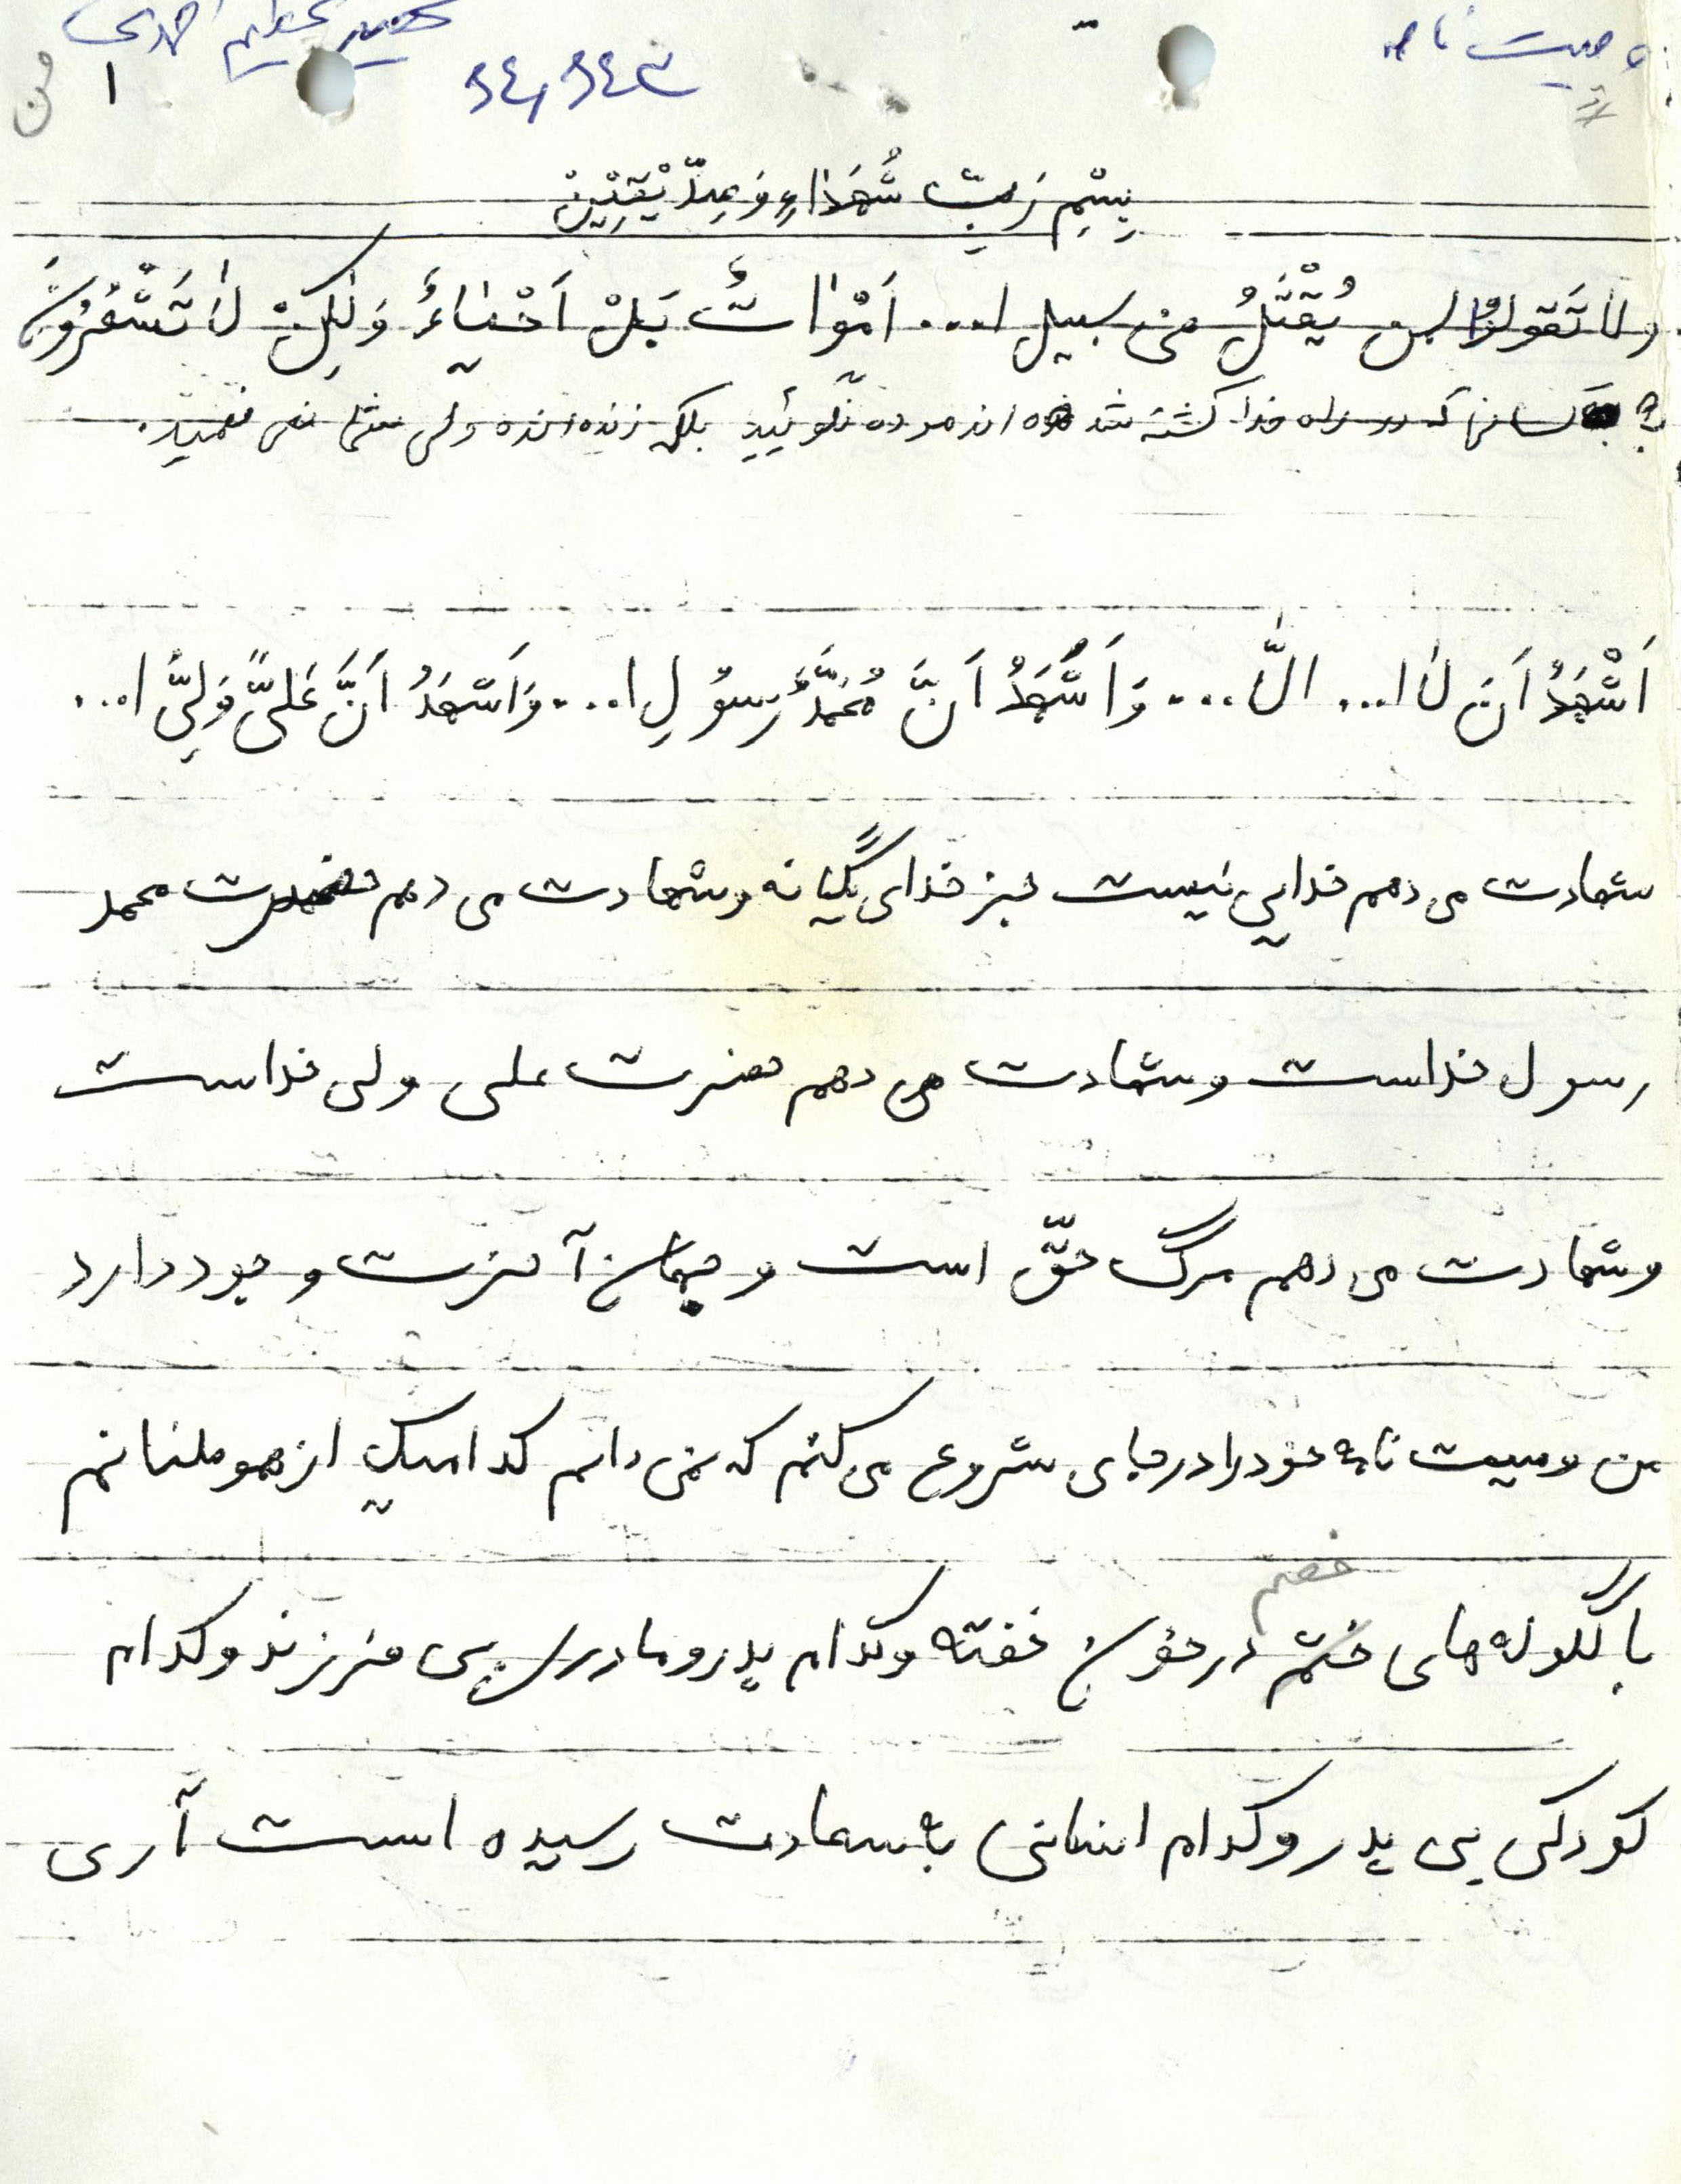 وصیت نامه
شهید عظیم احمدی
۱
بِسْمِ رَبِّ شُهَدٰاءِ وَ صِدّیْقِیْنْ
ولا تَقولوُا لمن یُقْتَلُ فی سبیل ا... اَمْوٰاتُ بَلْ اَحْیٰاءُ وَ لٰکِنْ لٰا تَشْعُرُونَ
به کسانیکه در راه خدا کشته شده اند مرده نگوئید بلکه زنده اند ولی شما نمی فهمید.
اَشْهَدُ اَن لٰا ا... الّٰا ... وَ اَشْهَدُ اَنَّ مُحَمَّدَ رسوُلِ ا... وَ اَشهَدُ اَنَّ عَلیّاً وَلِیُّ ا...
شهادت می دهم خدایی نیست جز خدای یگانه و شهادت می دهم حضرت محمد
رسول خداست و شهادت می دهم حضرت علی ولی خداست
و شهادت می دهم مرگ حقّ است و جهان آخرت وجود دارد
من وصیت نامه خود را در جای شروع می کنم که نمی دانم کدامیک از هموطنانم
خصم
با گلوله های ختم در خون خفته و کدام پدر و مادر بی فرزند و کدام
کودکی بی پدر و کدام انسانی به سعادت رسیده است آری